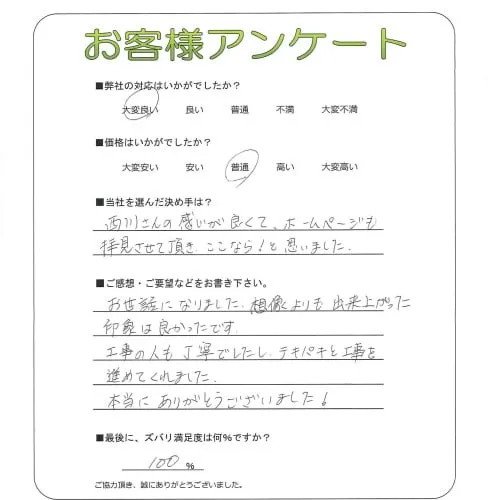 お客様アンケート
■弊社の対応はいかがでしたか？
大変良い 良い 普通 不満 大変不満
■価格はいかがでしたか？
大変安い 安い 普通 高い 大変高い
■当社を選んだ決め手は？
西川さんの感じが良くて、ホームページも
拝見させて頂き、ここなら！と思いました.
■ご感想・ご要望などをお書き下さい。
お世話になりました. 想像よりも出来上がった
印象は良かったです.
工事の人も丁寧でしたし、テキパキと工事を
進めてくれました.
本当にありがとうございました！
■最後に、ズバリ満足度は何%ですか？
100 %
ご協力頂き、誠にありがとうございました。